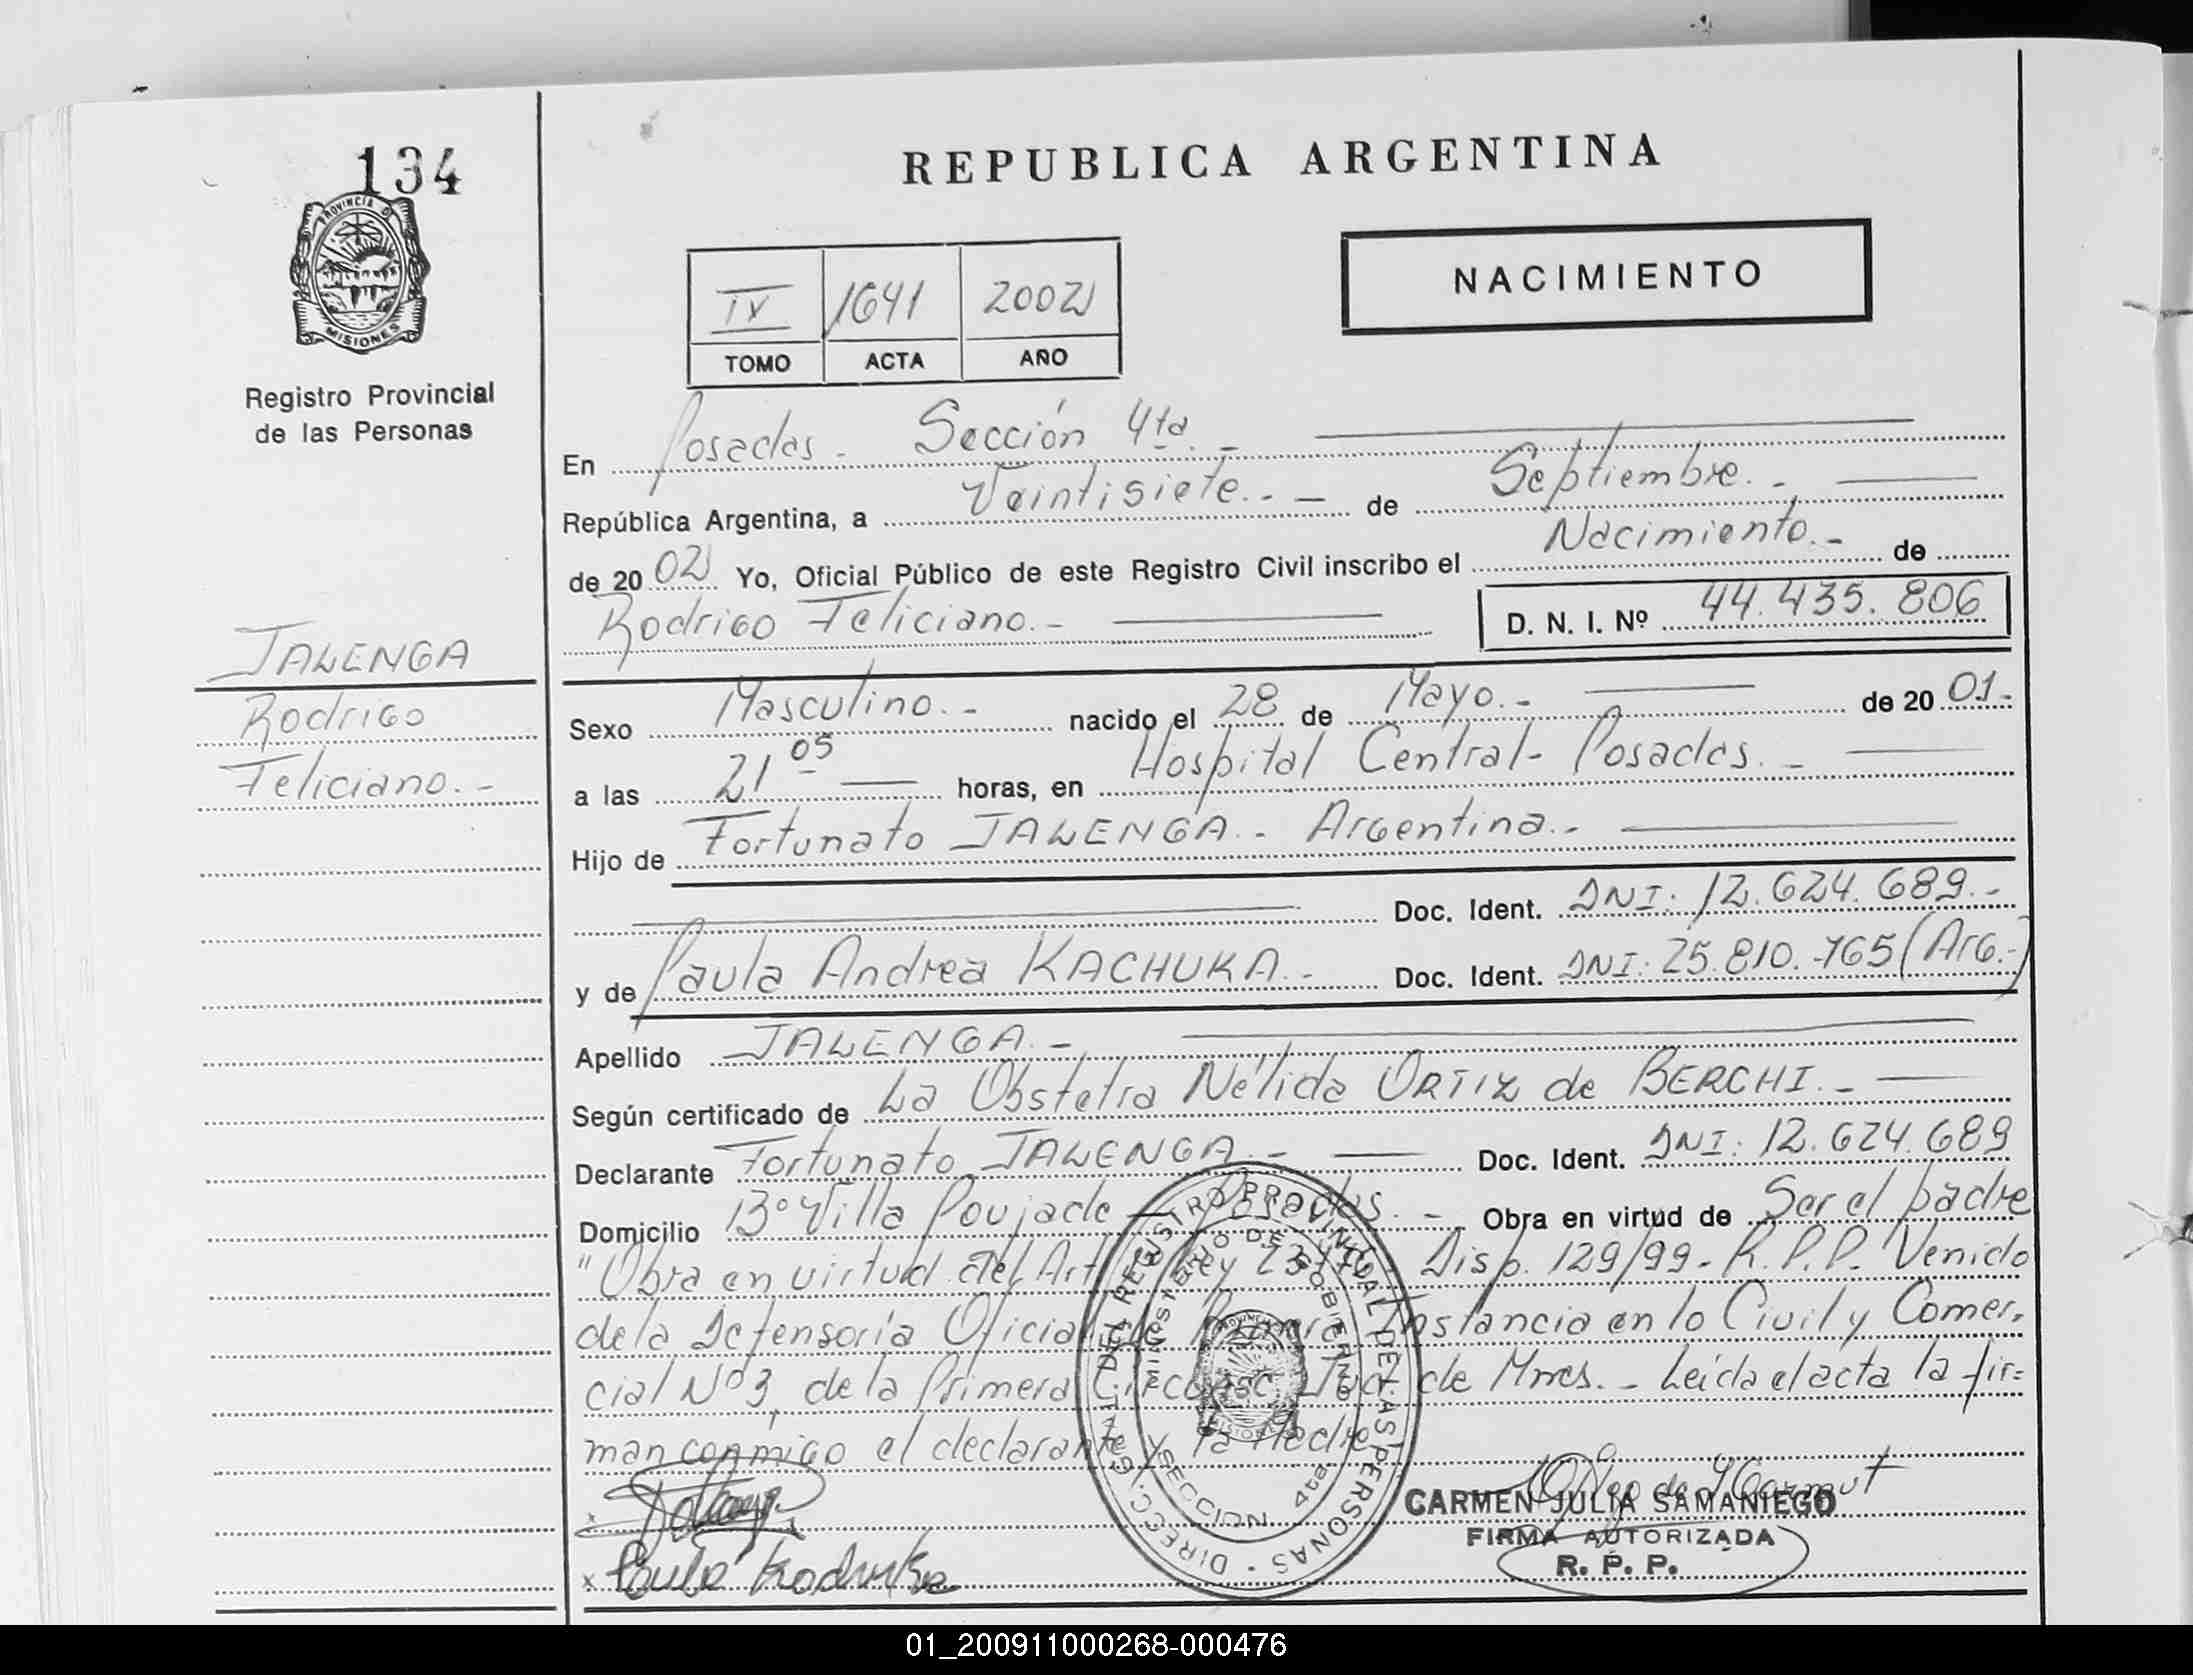 134
PROVINCIA DE
MISIONES
Registro Provincial
de las Personas
REPUBLICA ARGENTINA
NACIMIENTO
IV 1641 2002
TOMO ACTA AÑO
En Posadas - Sección 4ta. -
República Argentina, a Veintisiete. - de Septiembre. -
de 20 02 Yo, Oficial Público de este Registro Civil inscribo el Nacimiento. - de
Rodrigo Feliciano. - D. N. I. Nº 44.435.806
JALENGA
Rodrigo
Feliciano. -
Sexo Masculino. - nacido el 28 de Mayo. - de 20 01.-
a las 21 05 horas, en Hospital Central - Posadas. -
Hijo de Fortunato JALENGA. - Argentina. -
Doc. Ident. DNI: 12.624.689. -
y de Paula Andrea KACHUKA. - Doc. Ident. DNI: 25.810.765 (Arg.-)
Apellido JALENGA. -
Según certificado de La Obstetra Nélida ORTIZ de BERCHI. -
Declarante Fortunato JALENGA. - Doc. Ident. DNI: 12.624.689
Domicilio Bº Villa Poujade - Posadas. - Obra en virtud de Ser el padre
"Obra en virtud del Art. Ley Disp. 129/99 - R.P.P. Venido
de la Defensoría Oficial de Primera Instancia en lo Civil y Comer-
cial Nº 3, de la Primera Circunsc. Jud. de Mnes. - Leída el acta la fir=
man conmigo el declarante y la Madre
DIRECC. GRAL. DEL REGISTRO PROVINCIAL DE LAS PERSONAS
MINISTERIO DE GOBIERNO
SECCION 4ta
CARMEN JULIA SAMANIEGO
FIRMA AUTORIZADA
R. P. P.
x
x Paula Kachuka
01_200911000268-000476